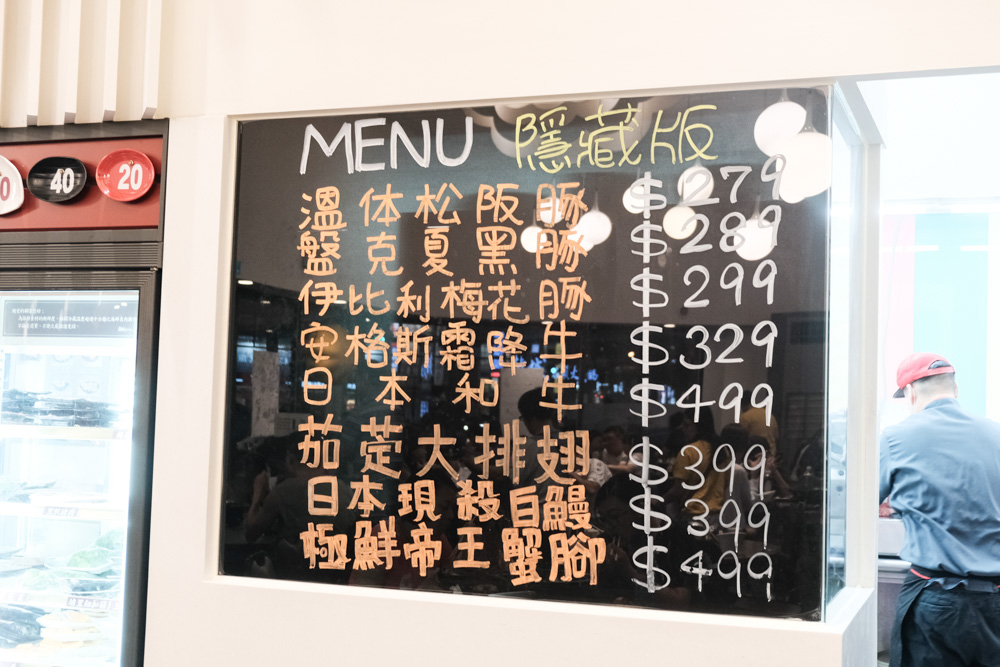 MENU 隱藏版
溫体松阪豚 $279
盤克夏黑豚 $289
伊比利梅花豚 $299
安格斯霜降牛 $329
日本和牛 $499
茄萣大排翅 $399
日本現殺白鰻 $399
極鮮帝王蟹腳 $499
40
20